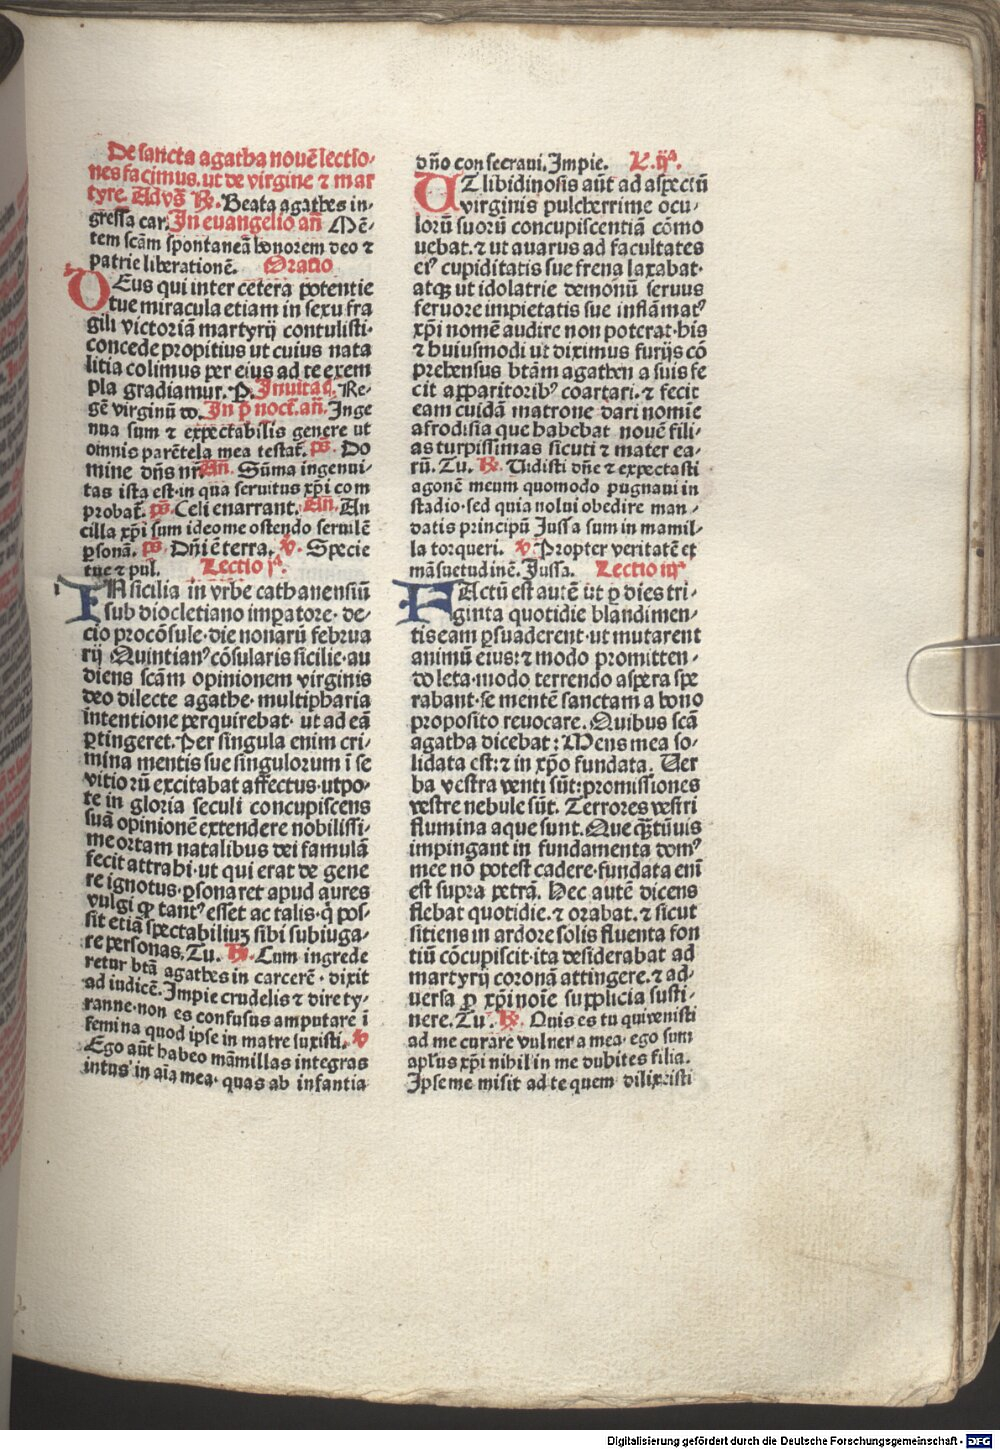 De sancta agatha nouē lectio-
nes facimus. ut de virgine ⁊ mar
tyre. Ad vs̄ ℟. Beata agathes in-
gressa car. In euangelio an̄ Mē-
tem scām spontaneā honorem deo ⁊
patrie liberationē. Oratio
DEus qui inter cetera potentie
tue miracula etiam in sexu fra
gili victoriā martyrij contulisti·
concede propitius ut cuius nata
litia colimus per eius ad te exem
pla gradiamur. P. Inuitaṫ. Re-
gē virginū do. In p̄ noct. an̄. Inge
nua sum ⁊ expectabilis genere ut
omnis parētela mea testat̄. ps̄. Do
mine dn̄s nr̄ An̄. Sūma ingenui-
tas ista est·in qua seruitus xp̄i com
probat̄. ps̄. Celi enarrant. An̄. An
cilla xp̄i sum ideo me ostendo seruilē
ꝑsonā. ps̄. Dn̄i ē terra. ℣. Specie
tue ⁊ pul. Lectio jᵃ.
IN sicilia in vrbe cathanensiū
sub diocletiano imꝑatore· de-
cio procōsule·die nonarū februa
rij Quintianꝰ cōsularis sicilie·au
diens scām opinionem virginis
deo dilecte agathe· multipharia
intentione perquirebat· ut ad eā
ꝑtingeret. Per singula enim cri-
mina mentis sue singulorum ī se
vitiorū excitabat affectus·utpo-
te in gloria seculi concupiscens
suā opinionē extendere nobilissi-
me ortam natalibus dei famulā
fecit attrahi·ut qui erat de gene
re ignotus·ꝑsonaret apud aures
vulgi ꝙ tantꝰ esset ac talis·q̇ pos-
sit etiā spectabiliuꝫ sibi subiuga-
re personas. Tu. ℟. Cum ingrede
retur btā agathes in carcerē · dixit
ad iudicē. Impie crudelis ⁊ dire ty-
ranne·non es confusus amputare ī
femina quod ipse in matre suxisti. ℣
Ego aūt habeo māmillas integras
intus in aīa mea· quas ab infantia
dn̄o consecraui. Impie. L. ijᵃ.
UT libidinosis aūt ad aspectū
virginis pulcherrime ocu-
lorū suorū concupiscentiā cōmo
uebat·⁊ ut auarus ad facultates
eiꝰ cupiditatis sue frena laxabat·
atqꝫ ut idolatrie demonū seruus
feruore impietatis sue inflāmatꝰ
xp̄i nomē audire non poterat·his
⁊ huiusmodi ut diximus furijs cō
prehensus btām agathen a suis fe
cit apparitoribꝰ coartari·⁊ fecit
eam cuidā matrone dari nomīe
afrodisia que habebat nouē fili-
as turpissimas sicuti ⁊ mater ea-
rū. Tu. ℟. Uidisti dn̄e ⁊ expectasti
agonē meum quomodo pugnaui in
stadio·sed quia nolui obedire man-
datis principū Jussa sum in mamil-
la torqueri. ℣. Propter veritatē et
māsuetudinē. Jussa. Lectio iijᵃ
FActū est autē ut ꝑ dies tri-
ginta quotidie blandimen-
tis eam ꝑsuaderent·ut mutarent
animū eius:⁊ modo promitten-
do leta·modo terrendo aspera spe
rabant·se mentē sanctam a bono
proposito reuocare. Quibus scā
agatha dicebat: Mens mea so-
lidata est:⁊ in xp̄o fundata. Uer
ba vestra venti sūt:promissiones
vestre nebule sūt. Terrores vestri
flumina aque sunt. Que qꝫtūuis
impingant in fundamenta domꝰ
mee nō potest cadere·fundata enī
est supra petrā. Hec autē dicens
flebat quotidie.⁊ orabat.⁊ sicut
sitiens in ardore solis fluenta fon
tiū cōcupiscit·ita desiderabat ad
martyrij coronā attingere.⁊ ad-
uersa ꝓ xp̄i noīe supplicia susti-
nere. Tu. ℟. Quis es tu qui venisti
ad me curare vulnera mea· ego sum
apl̄us xp̄i nihil in me dubites filia.
Ipse me misit ad te quem dilixisti
Digitalisierung gefördert durch die Deutsche Forschungsgemeinschaft - DFG